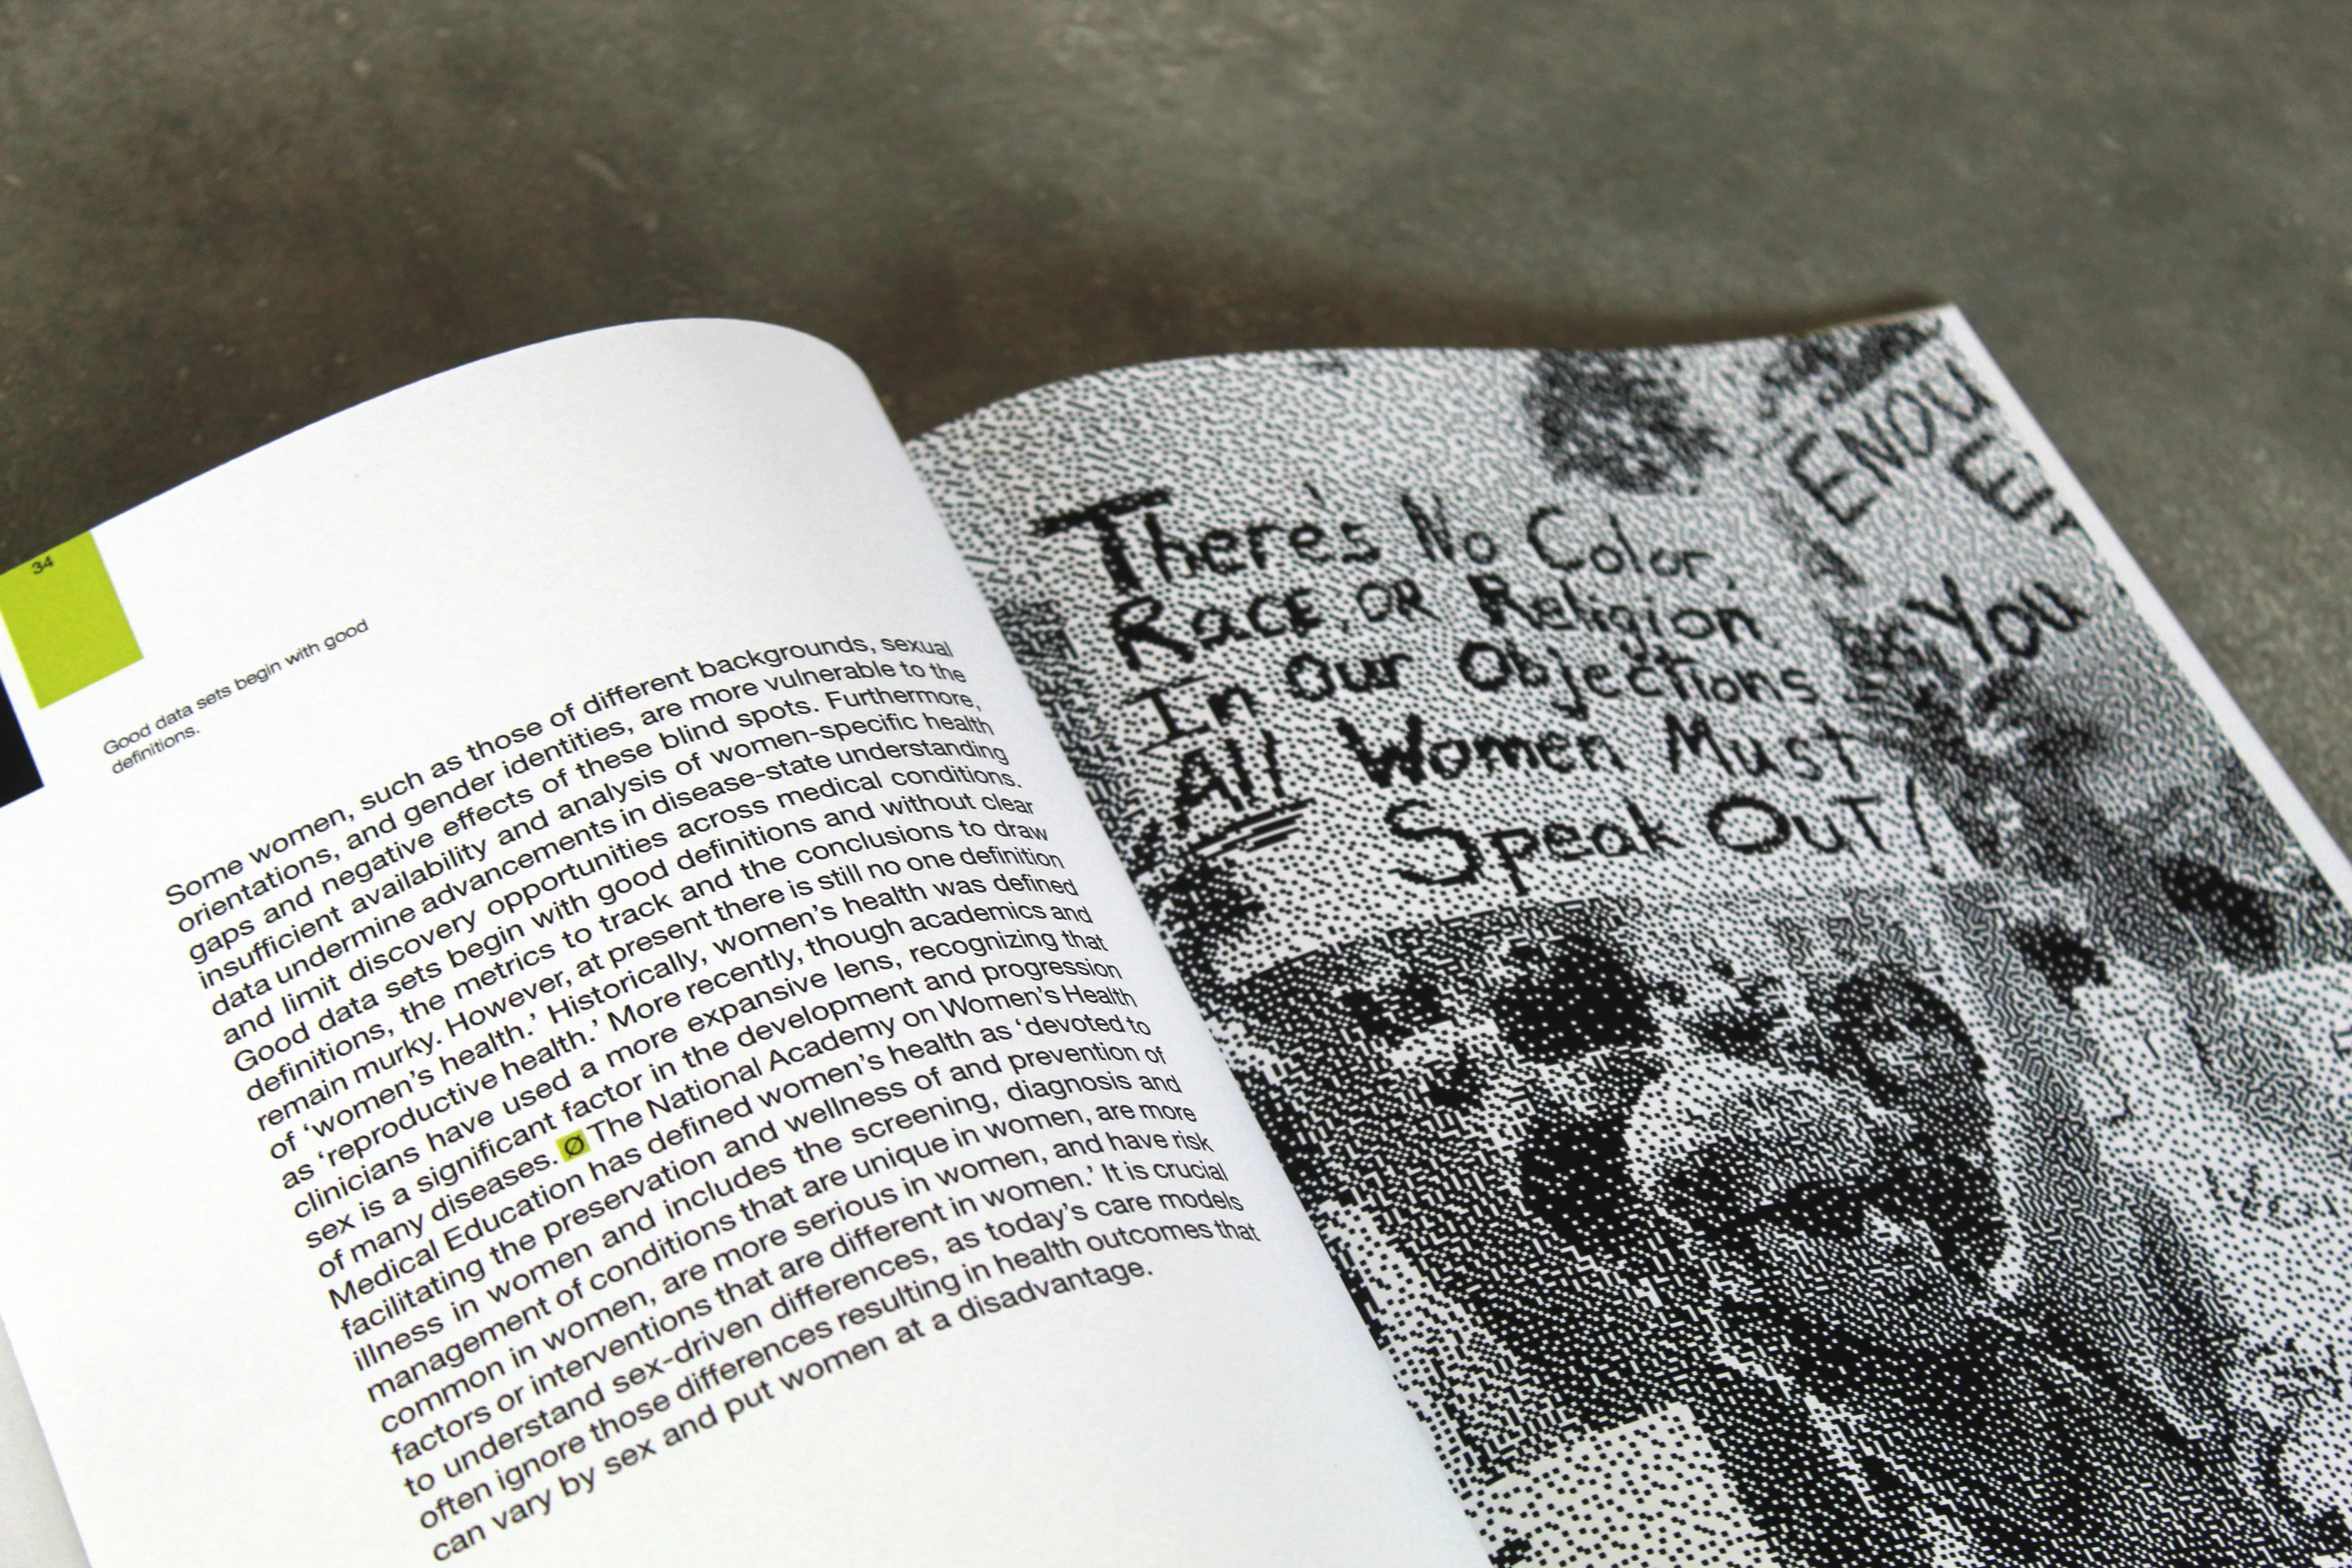 34
Good data sets begin with good
definitions.
Some women, such as those of different backgrounds, sexual
orientations, and gender identities, are more vulnerable to the
gaps and negative effects of these blind spots. Furthermore,
insufficient availability and analysis of women-specific health
data undermine advancements in disease-state understanding
and limit discovery opportunities across medical conditions.
Good data sets begin with good definitions and without clear
definitions, the metrics to track and the conclusions to draw
remain murky. However, at present there is still no one definition
of ‘women’s health.’ Historically, women’s health was defined
as ‘reproductive health.’ More recently, though academics and
clinicians have used a more expansive lens, recognizing that
sex is a significant factor in the development and progression
of many diseases. Ø The National Academy on Women’s Health
Medical Education has defined women’s health as ‘devoted to
facilitating the preservation and wellness of and prevention of
illness in women and includes the screening, diagnosis and
management of conditions that are unique in women, are more
common in women, are more serious in women, and have risk
factors or interventions that are different in women.’ It is crucial
to understand sex-driven differences, as today’s care models
often ignore those differences resulting in health outcomes that
can vary by sex and put women at a disadvantage.
There's No Color,
Race, OR Religion
In Our Objections
All Women Must
Speak OuT!
ENOU
You